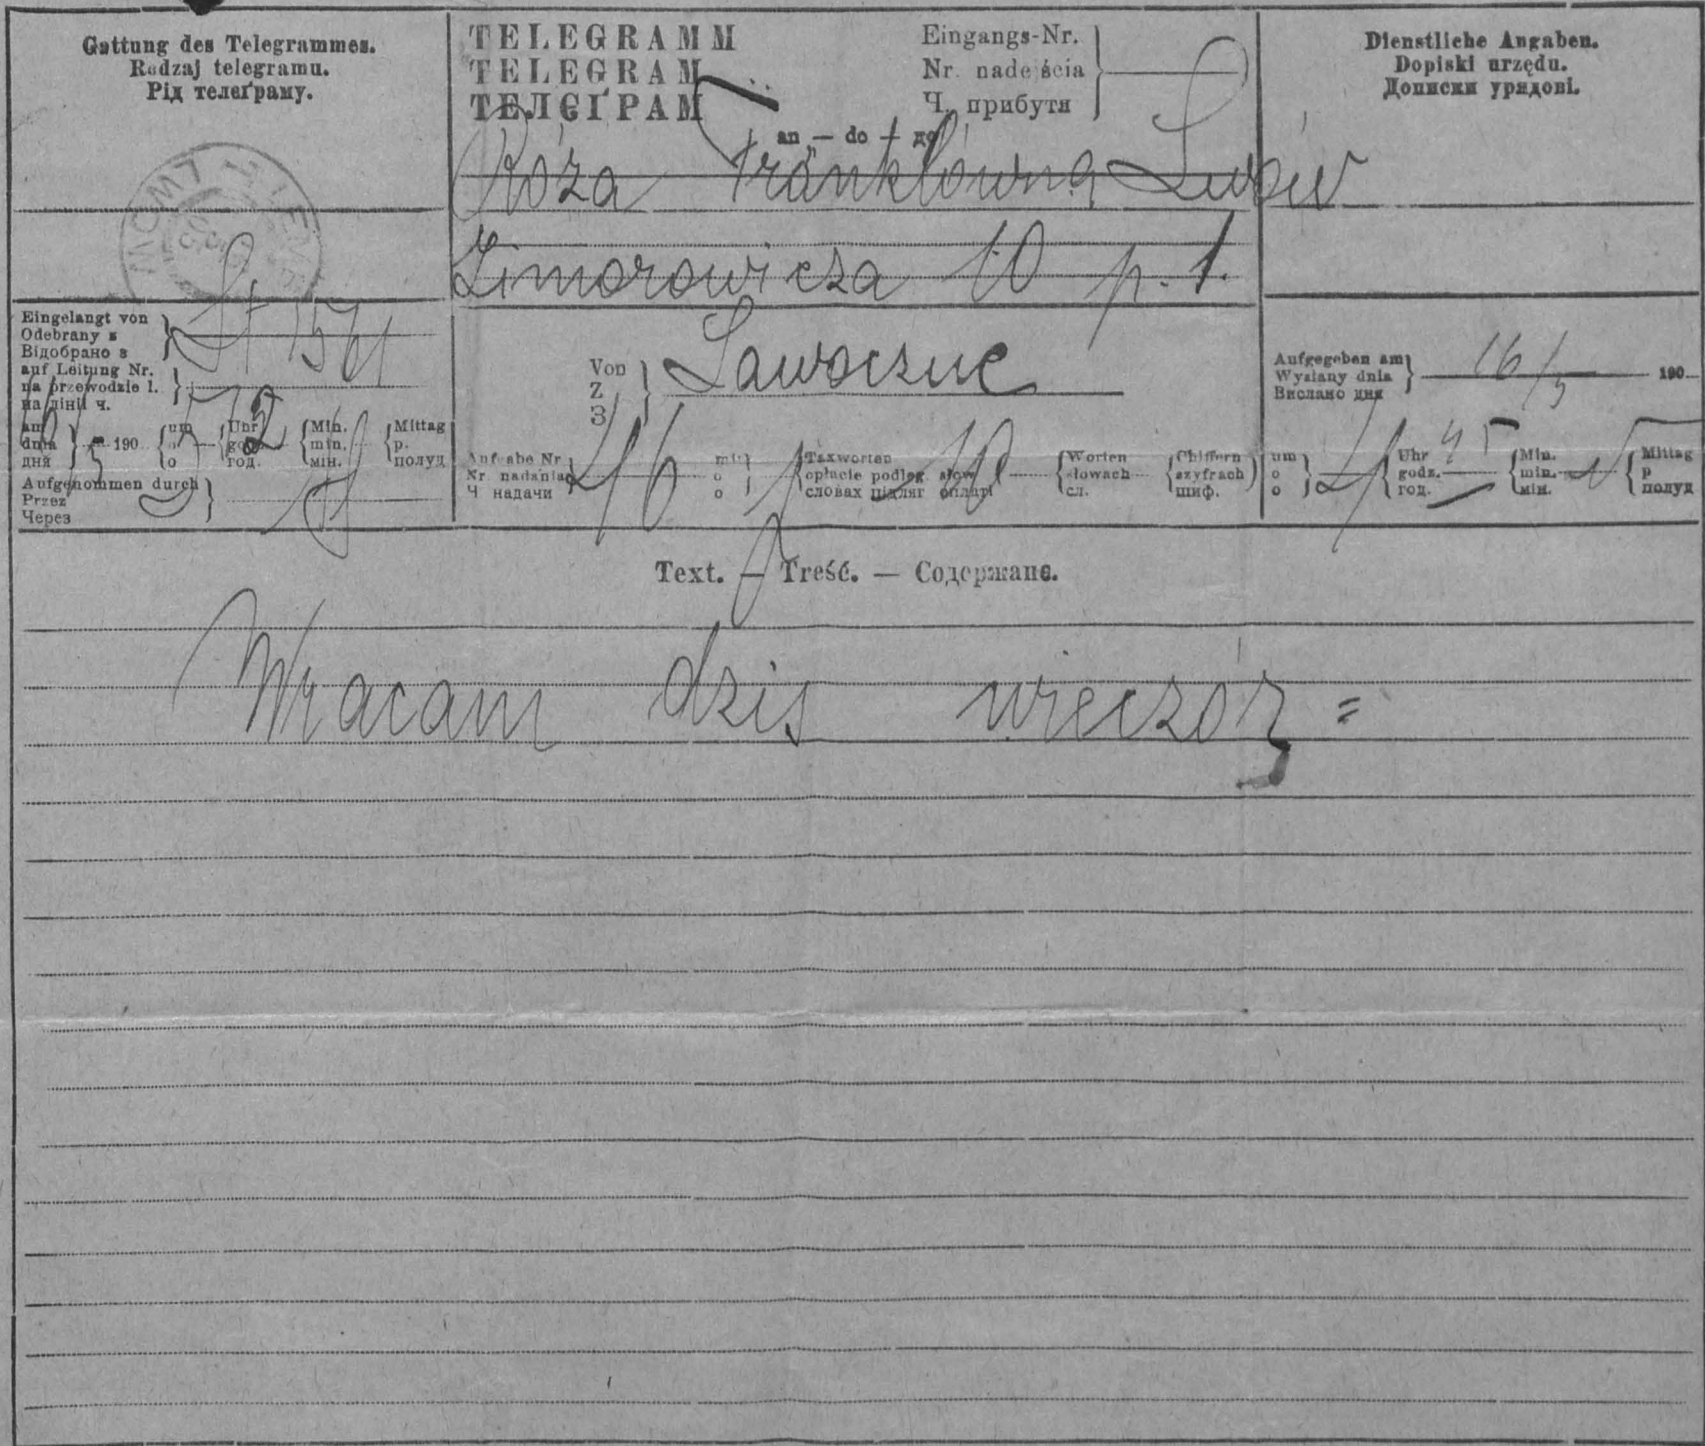 Gattung des Telegrammes.
Rodzaj telegramu.
Рід телєґраму.
TELEGRAMM
TELEGRAM
ТЕЛЄҐРАМ
Eingangs-Nr.
Nr. nadejścia
Ч. прибутя
an — do — до
Dienstliche Angaben.
Dopiski urzędu.
Дописки урядові.
Róża Fränklówna Lwów
Zimorowicza 10 p. 1.
Eingelangt von
Odebrany z
Відобрано з
auf Leitung Nr.
na przewodzie l.
на лінії ч.
am
dnia
дня
190
um
o
о
Uhr
godz.
год.
Min.
min.
мін.
Mittag
p.
полуд
Aufgenommen durch
Przez
Через
Von
Z
З
Lawoczne
Aufgabe Nr.
Nr. nadania
Ч. надачи
46
mit
o
о
Taxworten
opłacie podleg. słow.
словах підляг. оплаті
10
Worten
słowach
сл.
Chiffern
szyfrach
шиф.
Aufgegeben am
Wysłany dnia
Вислано дня
16/5
190
um
o
о
4
Uhr
godz.
год.
45
Min.
min.
мін.
Mittag
p
полуд
Text. — Treść. — Содержанє.
Wracam dziś wieczór =